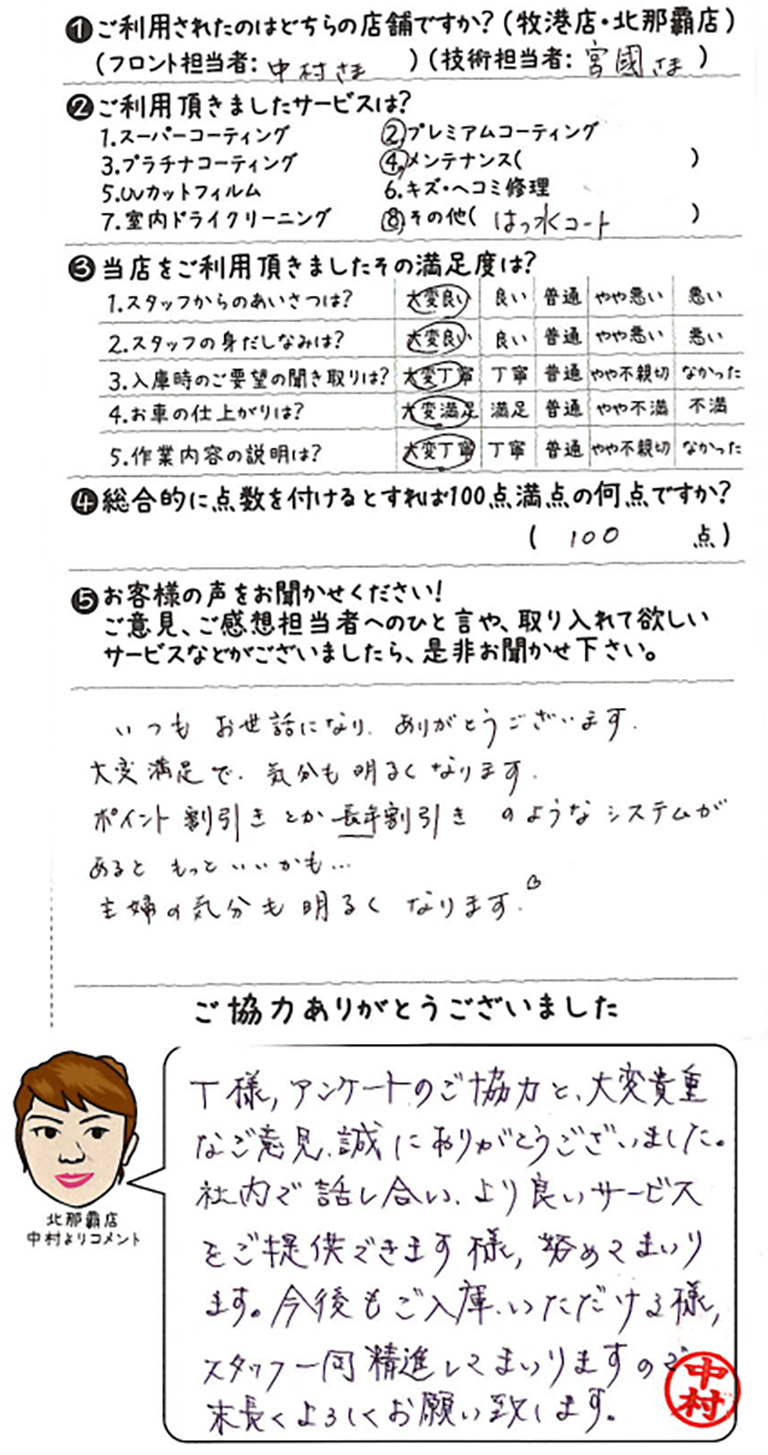 ❶ご利用されたのはどちらの店舗ですか?(牧港店・北那覇店)
(フロント担当者: 中村さま )(技術担当者: 宮國さま )
❷ご利用頂きましたサービスは?
1.スーパーコーティング ②プレミアムコーティング
3.プラチナコーティング ④.メンテナンス( )
5.UVカットフィルム 6.キズ・ヘコミ修理
7.室内ドライクリーニング ⑧その他( はっ水コート )
❸当店をご利用頂きましたその満足度は?
1.スタッフからのあいさつは? 大変良い 良い 普通 やや悪い 悪い
2.スタッフの身だしなみは? 大変良い 良い 普通 やや悪い 悪い
3.入庫時のご要望の聞き取りは? 大変丁寧 丁寧 普通 やや不親切 なかった
4.お車の仕上がりは? 大変満足 満足 普通 やや不満 不満
5.作業内容の説明は? 大変丁寧 丁寧 普通 やや不親切 なかった
❹総合的に点数を付けるとすれば100点満点の何点ですか?
( 100 点)
❺お客様の声をお聞かせください!
ご意見、ご感想担当者へのひと言や、取り入れて欲しい
サービスなどがございましたら、是非お聞かせ下さい。
いつも お世話になり、ありがとうございます.
大変満足で、気分も明るくなります.
ポイント割引きとか長年割引き のようなシステムが
あると もっといいかも…
主婦の気分も明るく なります.
ご協力ありがとうございました
T様,アンケートのご協力と、大変貴重
なご意見、誠にありがとうございました。
社内で話し合い、より良いサービス
をご提供できます様,努めてまいり
ます。今後もご入庫、いただける様,
スタッフ一同精進してまいりますので
末長くよろしくお願い致します。
北那覇店
中村よりコメント
中村